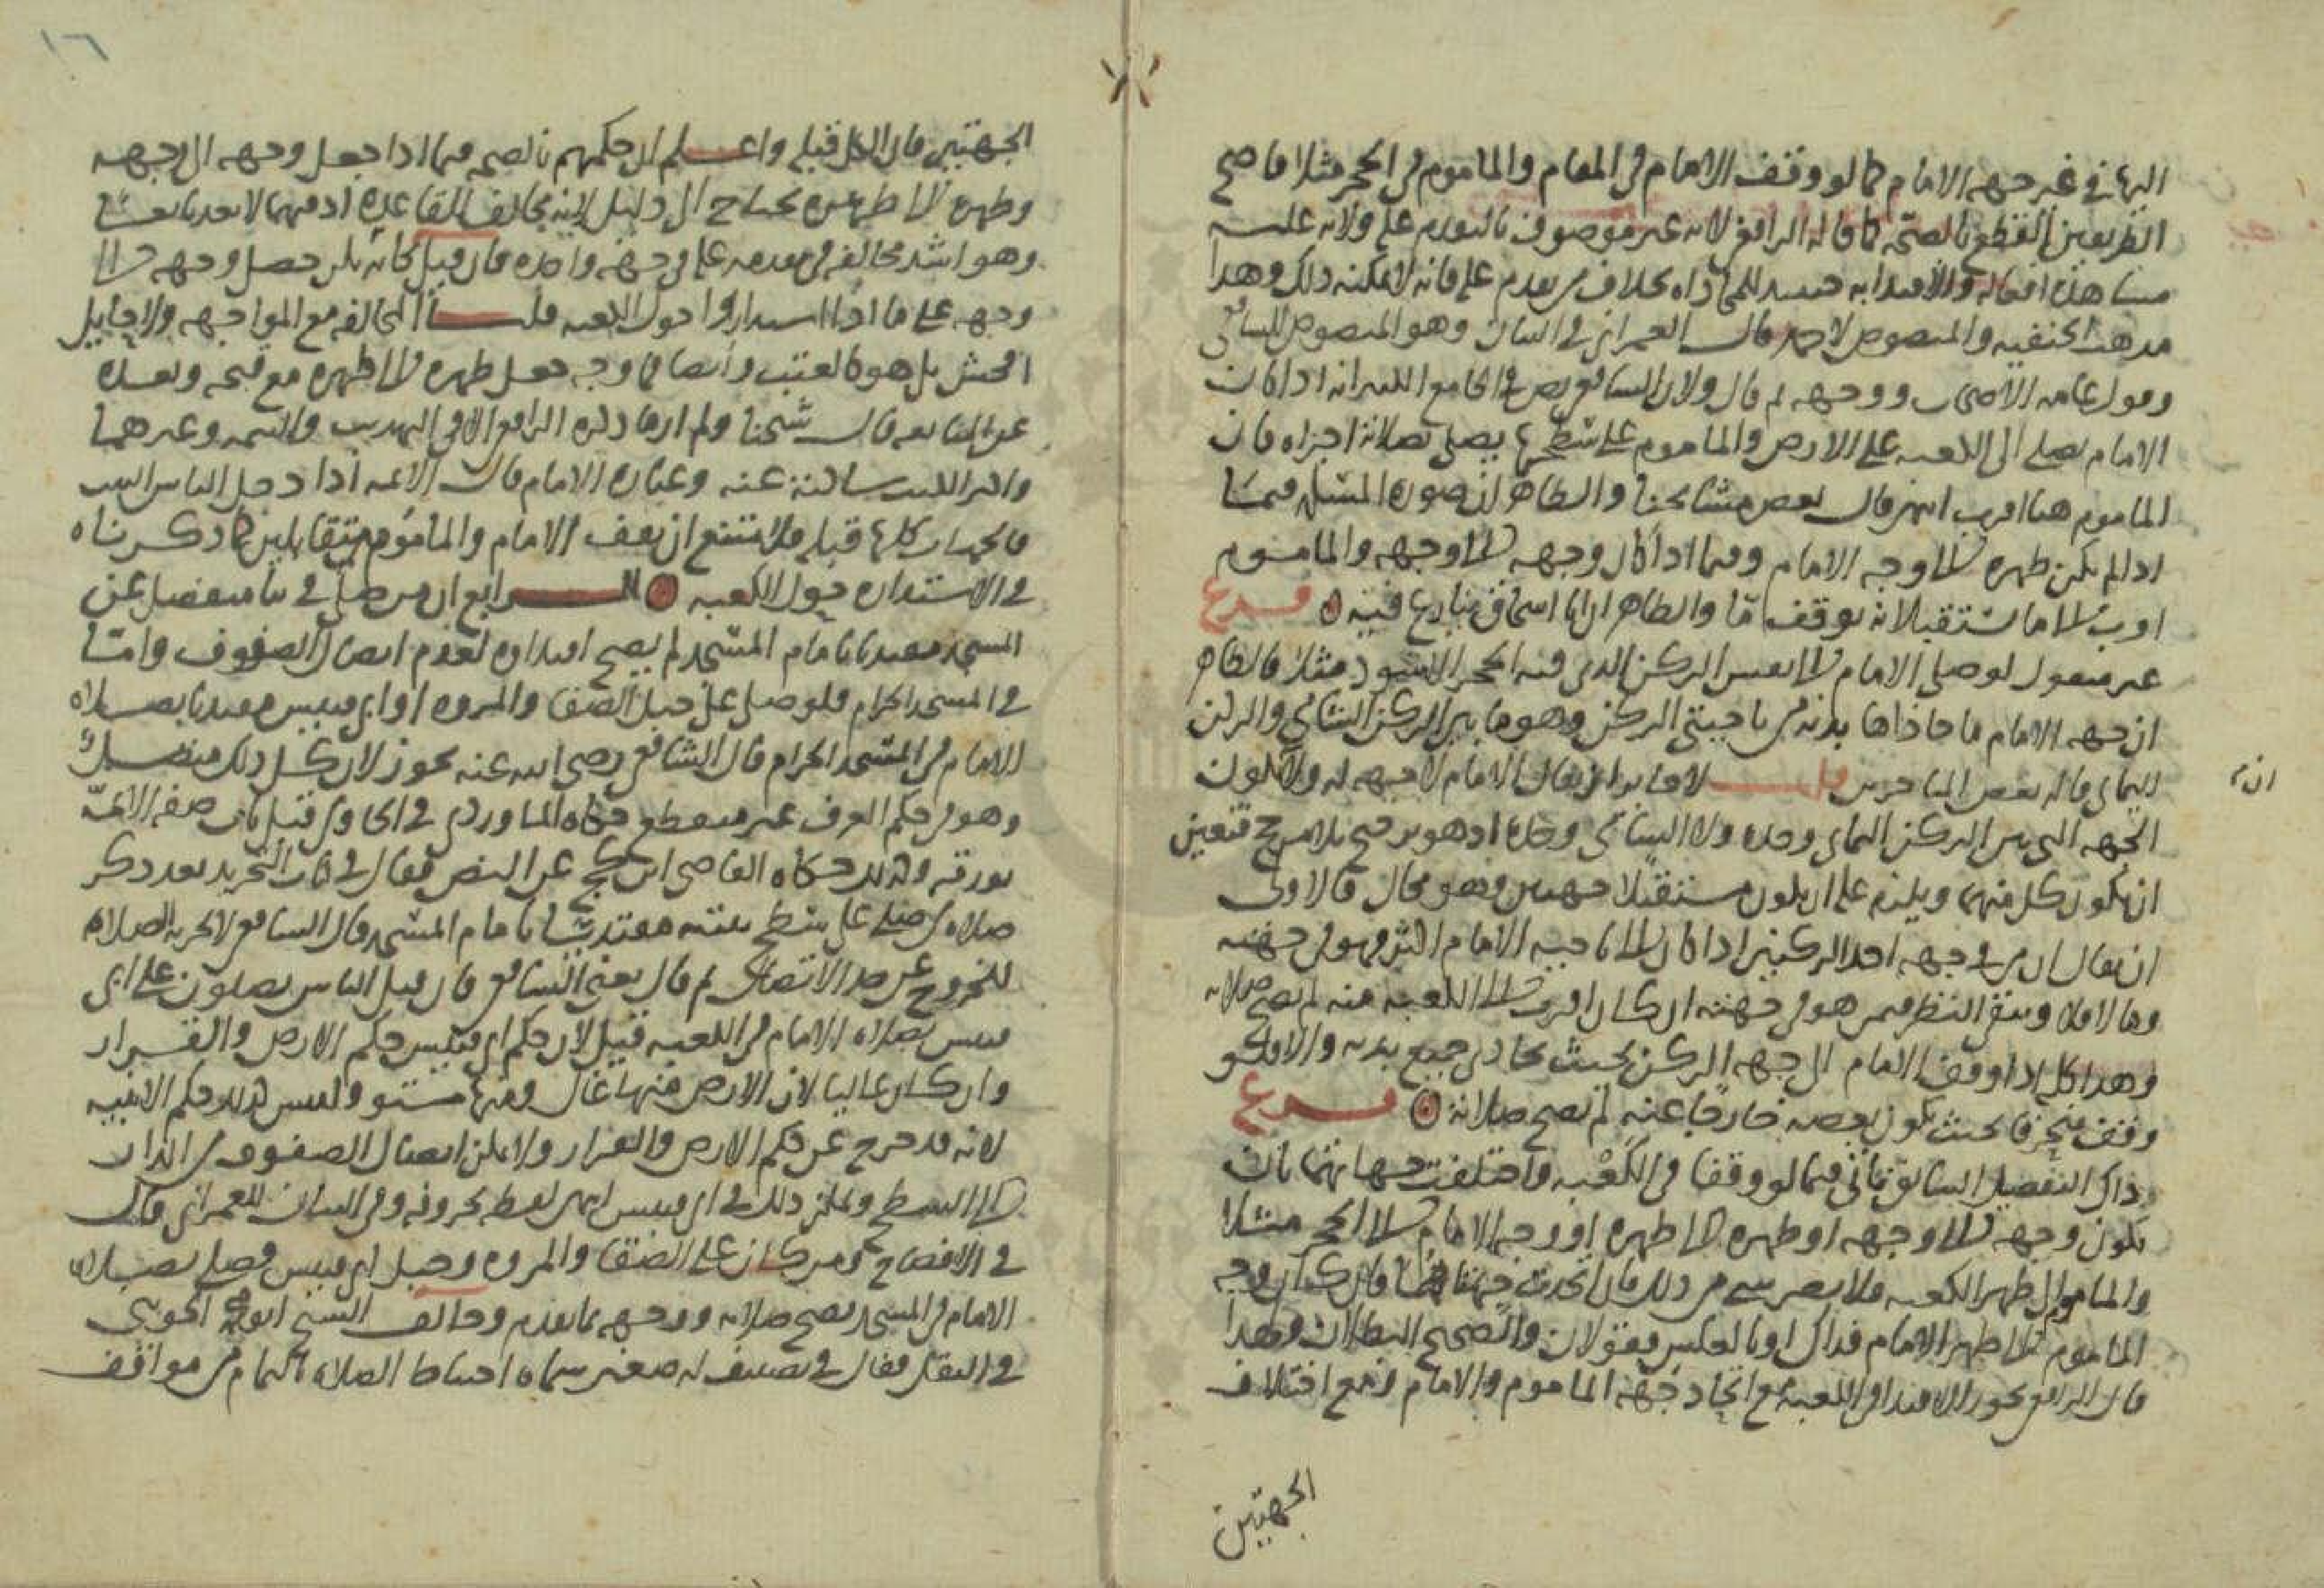 اليها في غير جهه الامام كما لو وقف الامام في المقام والماموم في الحجر مثلا فاصح
الطريقين القطع بالصحه كما قاله الرافعي لانه غير موصوف بالتقدم عليه ولانه عليه
مشاهدة افعاله والاقتدا به بخلاف من تقدم عليه فانه لا يمكنه ذلك وهذا
مذهب الحنفيه والمنصوص لاحمد قال العمراني في البيان وهو المنصوص للشافعي
وقول عامه الاصحاب ووجهه ثم قال ولان الشافعي نص في الجامع الكبير انه اذا كان
الامام يصلي الى الكعبه على الارض والماموم على سطحها يصلي بصلاته اجزاه فان
الماموم هنا اقرب انتهى قال بعض مشايخنا والظاهر ان صورة المسئله فيما
اذا لم يكن ظهره الى وجه الامام وفيما اذا كان وجهه الى وجهه والماموم
اقرب الى ما استقبله لانه توقف ما والظاهر ان فيه فرع
غير منقول لو صلى الامام الى نفس الركن الذي فيه الحجر الاسود مثلا فالظاهر
ان جهه الامام ما حاذاها بدنه من ناحيتي الركن وهو ما بين الركن الشامي والركن
اليماني قاله بعض المتاخرين قلت لا جايز ان يقال الامام لا جهه له ولا تكون
ان
الجهه التي بين الركن اليماني وحده ولا الشامي وحده اذ هو ترجيح بلا مرجح فتعين
ان يكون كل منهما ويلزم عليه ان يكون مستقبلا جهتين وهو محال فالاولى
ان يقال ان من في جهه احد الركنين اذا كان الى ناحيه الامام اكثر فهو في جهته
والا فلا وينبغي النظر فيمن هو في جهته ان كان اقرب الى الكعبه منه لم تصح صلاته
وهذا كله اذا وقف الامام الى جهه الركن بحيث يحاذي جميع بدنه والا فلو
وقف منحرفا بحيث يكون بعضه خارجا عنه لم تصح صلاته فرع
ذاك التفصيل السابق ياتي فيما لو وقفا في الكعبه واختلفت جهاتهما بان
يكون وجهه الى وجهه او ظهره الى ظهره او وجه الامام الى الحجر مثلا
والماموم الى ظهر الكعبه فلا يضر شي من ذلك فان اتحدت جهتاهما فان كان وجه
الماموم الى ظهر الامام فذاك او بالعكس فقولان والصحيح البطلان وهذا
قال الرافعي يجوز الاقتدا في الكعبه مع اتحاد جهه الماموم والامام ومع اختلاف
الجهتين
١٦
الجهتين فان الكل قبله واعلم ان حكمهم بالصحه فيما اذا جعل وجهه الى وجهه
وظهره الى ظهره يحتاج الى دليل لانه يخالف القاعده اذ فيهما لا يعد تابعا
وهو اشد مخالفه في تقدمه عليه في جهه واحده فان قيل كانه يكن حصل وجهه الى
وجهه على ما اذا استداروا حول الكعبه قلنا المخالفه مع المواجهه ولا حايل
افحش بل هو كالعبث وايضا فما وجه جعل ظهره الى ظهره مع قبحه وبعده
عن المتابعه قال شيخنا ولم ار ما ذكره الرافعي الا في التهذيب والتتمه وغيرهما
واكثر الكتب ساكتة عنه وعبارة الامام قال الائمه اذا دخل الناس البيت
فالجدران كلها قبله فلا يمتنع ان يقف الامام والماموم متقابلين كما ذكرناه
في الاستداره حول الكعبه الرابع ان من صلى في بنا منفصل عن
المسجد مقتديا بامام المسجد لم يصح اقتداوه لعدم اتصال الصفوف واما
في المسجد الحرام فلو صلى على جبل الصفا والمروه او ابي قبيس مقتديا بصلاه
الامام في المسجد الحرام قال الشافعي رضي الله عنه يجوز لان كل ذلك متصل
وهو في حكم العرف غير منقطع حكاه الماوردي في الحاوي قبيل باب صفه الائمة
بورقه وكذلك حكاه القاضي ابن كج عن النص فقال في كتاب التجريد بعد ذكر
صلاه من صلى على سطح بيته مقتديا بامام المسجد قال الشافعي لا تجزيه الصلاه
للخروج عن حد الاتصال ثم قال يعني الشافعي فان قيل الناس يصلون على ابي
قبيس بصلاه الامام في الكعبه قيل لان حكم ابي قبيس حكم الارض والقرار
وان كان عاليا لان الارض منها عال ومنها مستو وليس كذلك حكم الابنيه
لانه قد خرج عن حكم الارض والقرار ولا يمكن اتصال الصفوف من الدار
الى السطح ويمكن ذلك في ابي قبيس انتهى لفظه بحروفه وفي البيان للعمراني قال
في الافصاح ومن كان على الصفا والمروه وجبل ابي قبيس فصلى بصلاه
الامام في المسجد تصح صلاته ووجهه بما تقدم وخالف الشيخ ابو محمد الجويني
في النقل فقال في تصنيف له صغير سماه احتياط الصلاه التمام من مواقف